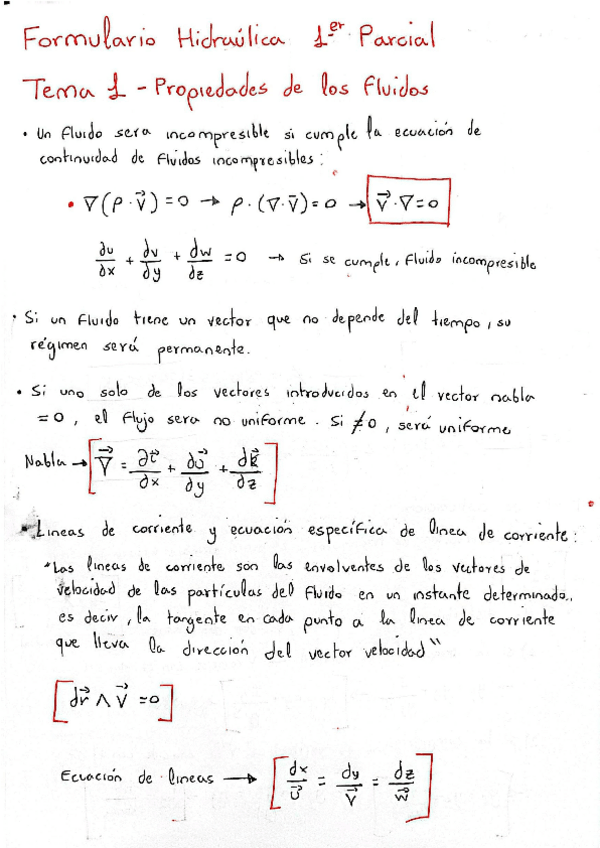 Formulario Hidraúlica 1er Parcial
Tema 1 - Propiedades de los Fluidos
• Un fluido sera incompresible si cumple la ecuación de
continuidad de fluidos incompresibles:
• ∇(ρ·v⃗)=0 → ρ·(∇·v⃗)=0 → v⃗·∇=0
∂u/∂x + dv/dy + dw/dz = 0 → Si se cumple, fluido incompresible
• Si un fluido tiene un vector que no depende del tiempo, su
régimen será permanente.
• Si uno solo de los vectores introducidos en el vector nabla
=0, el flujo sera no uniforme. Si ≠0, será uniforme
Nabla → [∇⃗ = ∂i⃗/∂x + ∂j⃗/∂y + ∂k⃗/∂z]
• Lineas de corriente y ecuación específica de linea de corriente:
"Las lineas de corriente son las envolventes de los vectores de
velocidad de las partículas del fluido en un instante determinado..
es decir, la tangente en cada punto a la linea de corriente
que lleva la dirección del vector velocidad"
[dr⃗ ∧ v⃗ =0]
Ecuación de lineas → [dx/u⃗ = dy/v⃗ = dz/w⃗]